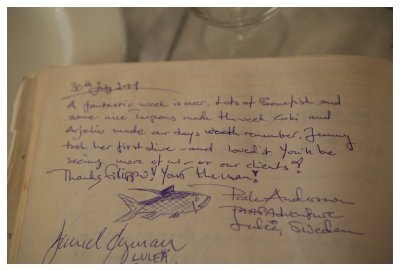 30th July 2009
A fantastic week is over. Lots of Bonefish and
some nice tarpons made the week. Coki and
made our days worth remember. Jimmy
took her first dive - and loved it. You'll be
seeing more of us - or our clients!
Thanks Filippo! Your the man!
Anderson
Adventure
Luleå, Sweden
LULEÅ